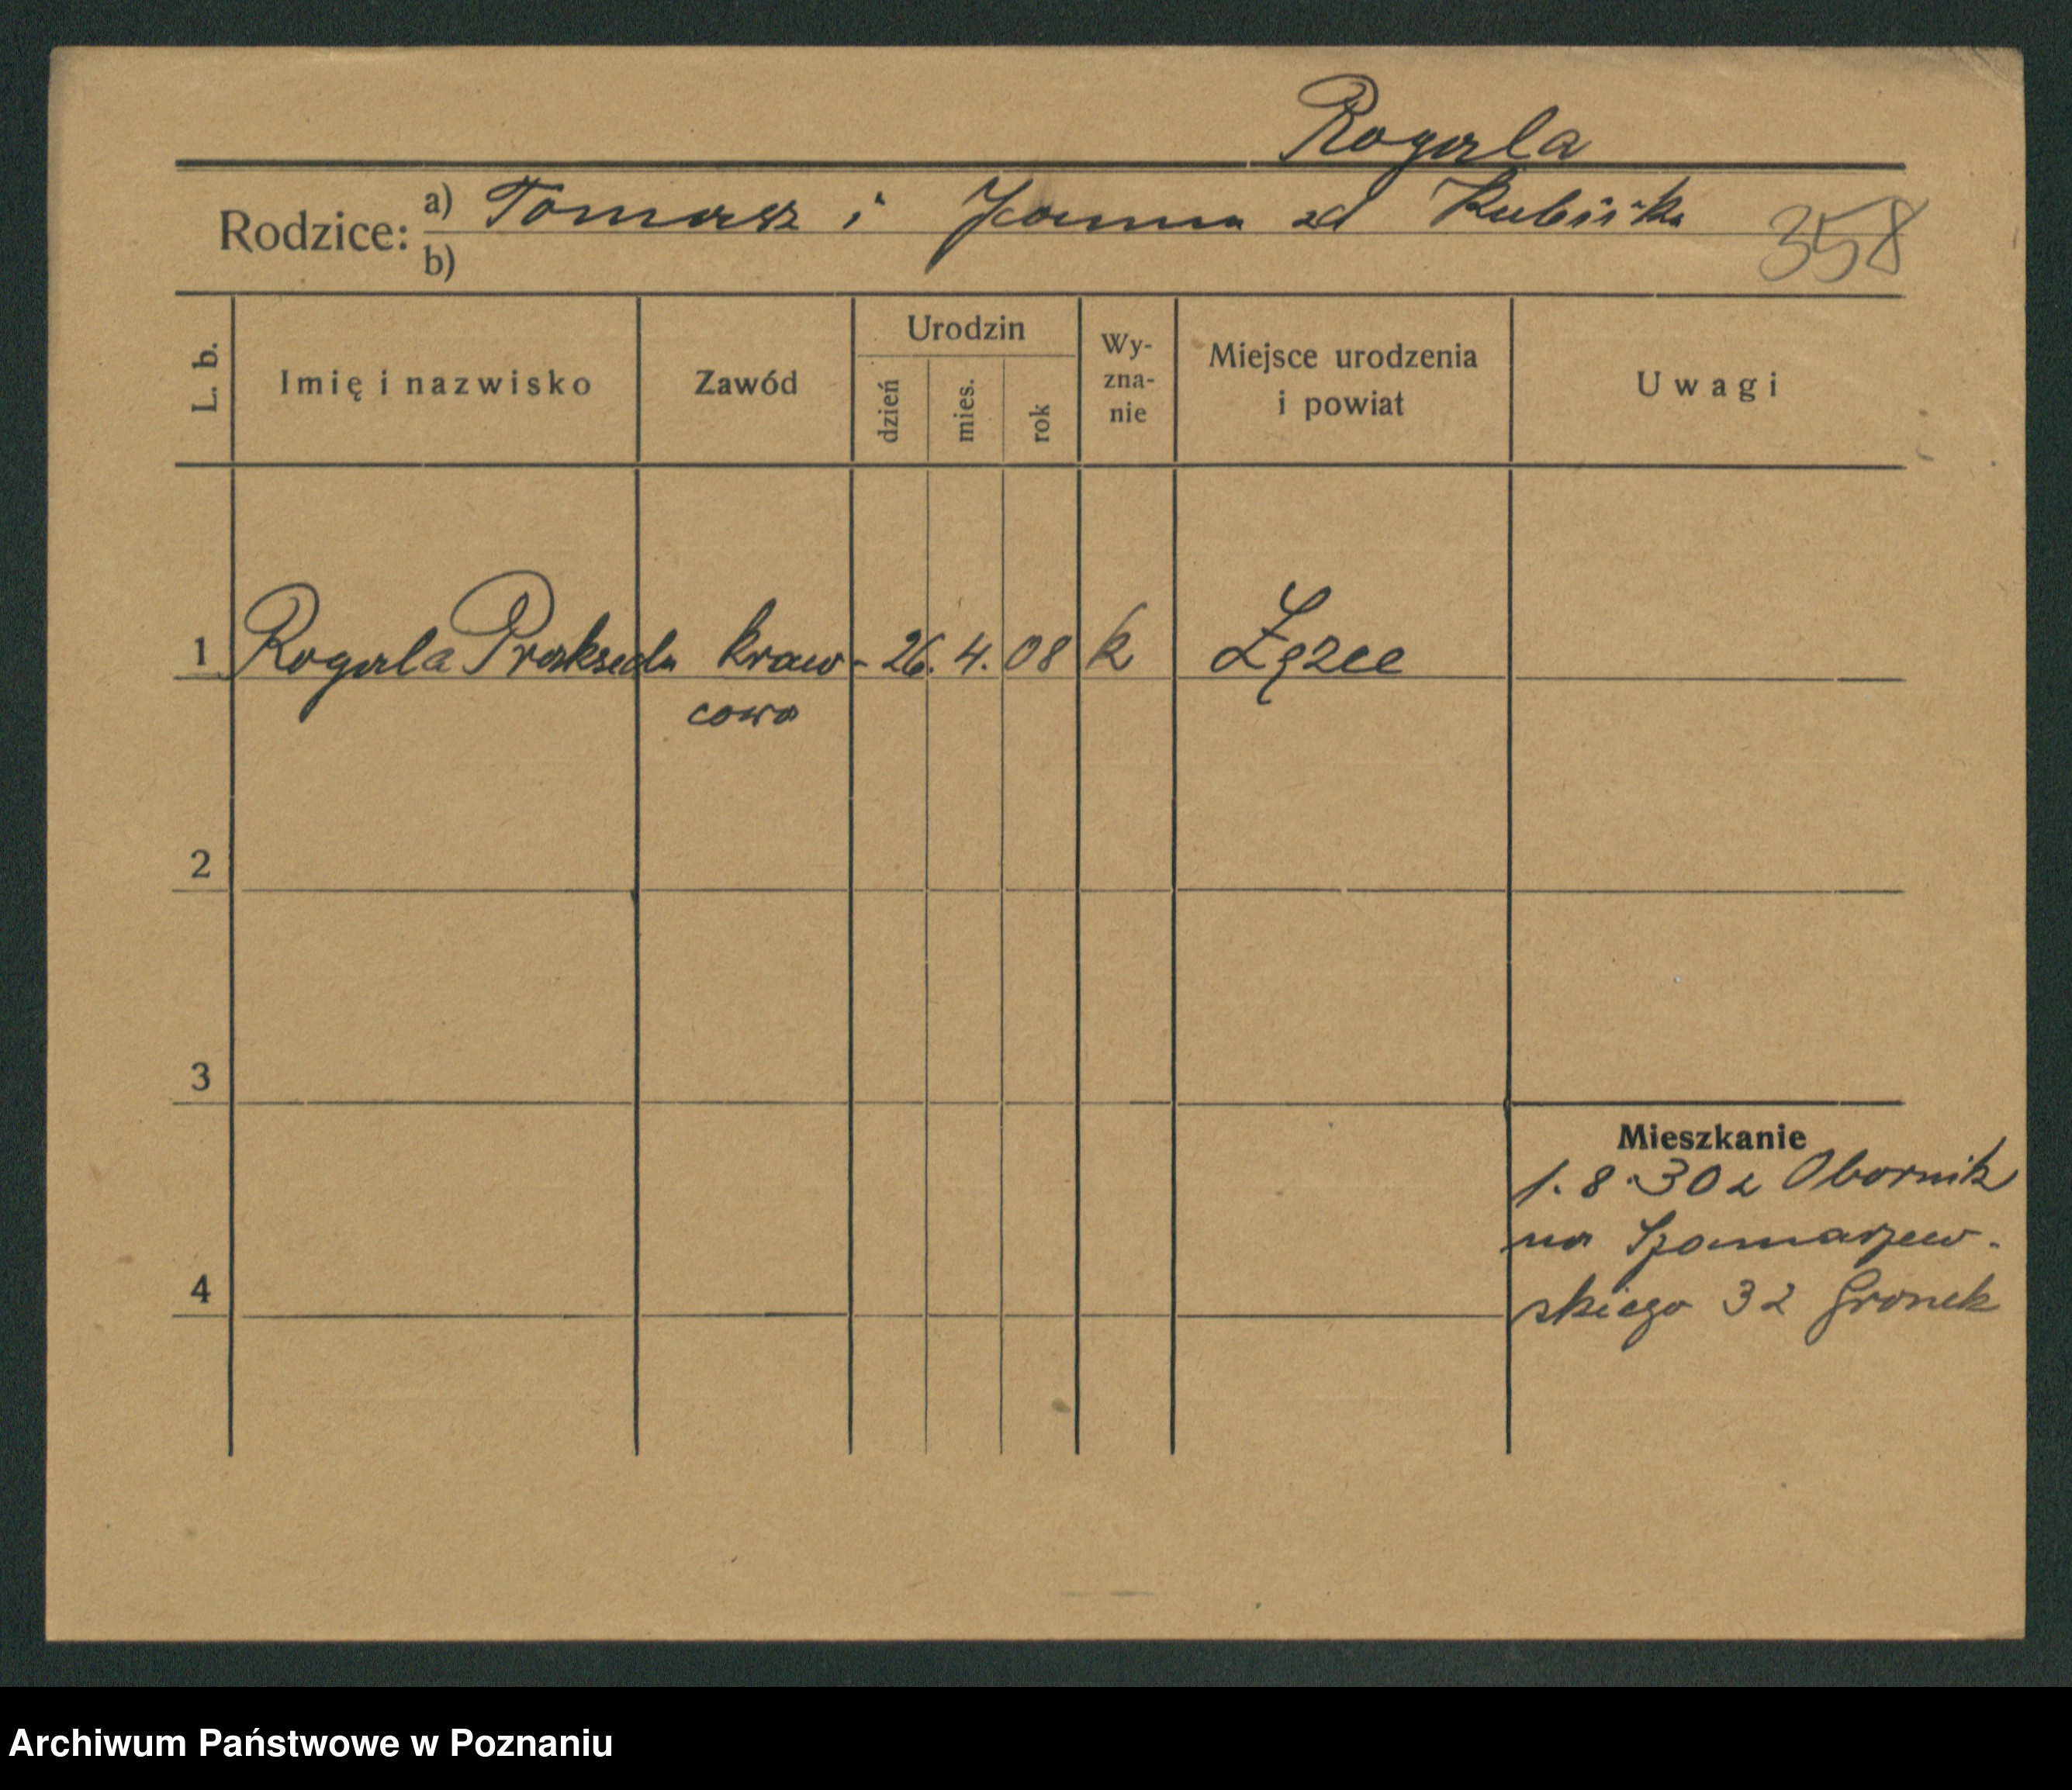 Rogala
Rodzice: a) Tomasz i Joanna zd Kubiak
b)
358
L. b.
Imię i nazwisko
Zawód
Urodzin
dzień
mies.
rok
Wy-
zna-
nie
Miejsce urodzenia
i powiat
Uwagi
1 Rogala Prakseda kraw- 26. 4. 08 k
cowa
2
3
4
Mieszkanie
1. 8. 30 z Obornik
na Szamarzew-
skiego 32 Gronek
Archiwum Państwowe w Poznaniu